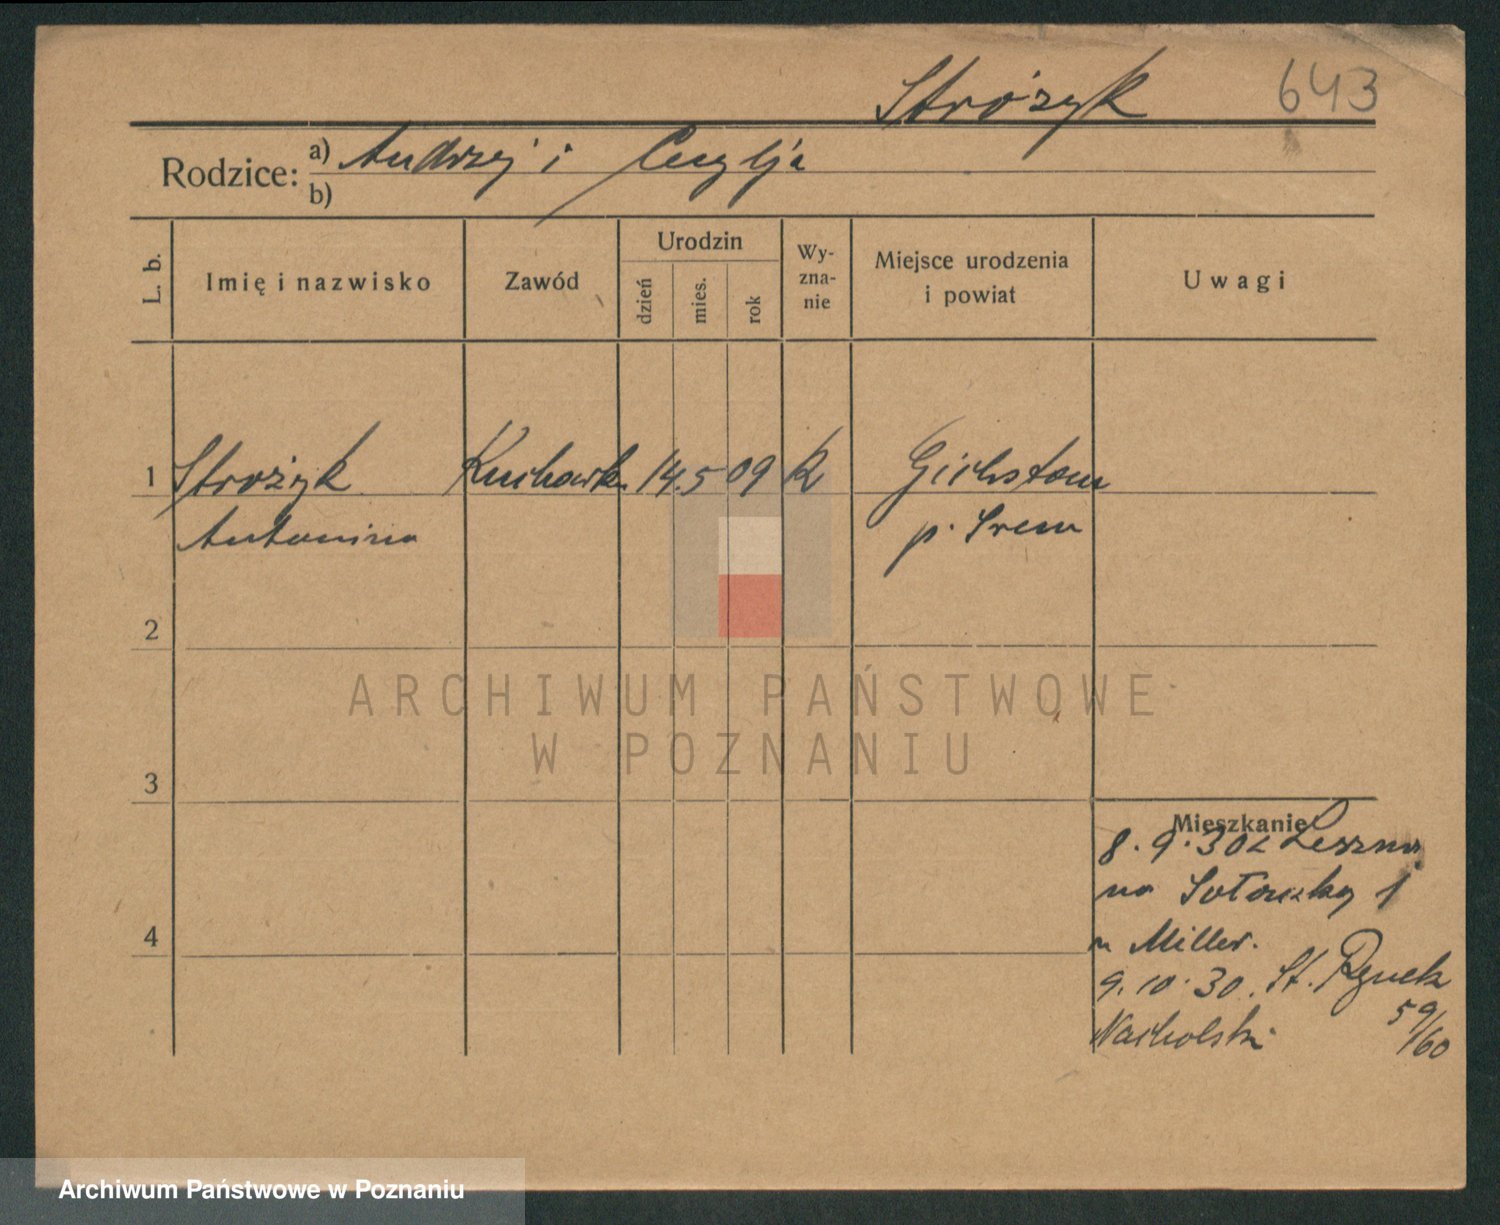 Stróżyk 643
Rodzice: a) Andrzej i Cecylja
b)
L. b.
Imię i nazwisko
Zawód
Urodzin
dzień
mies.
rok
Wy-
zna-
nie
Miejsce urodzenia
i powiat
Uwagi
1 Stróżyk Kucharka 14. 5 09 K
Antonina p. Śrem
2
3
4
ARCHIWUM PAŃSTWOWE
W POZNANIU
Mieszkanie
8. 9. 30 z Leszna
na 1
u Miller.
9. 10. 30. St. Rynek
59/60
Archiwum Państwowe w Poznaniu